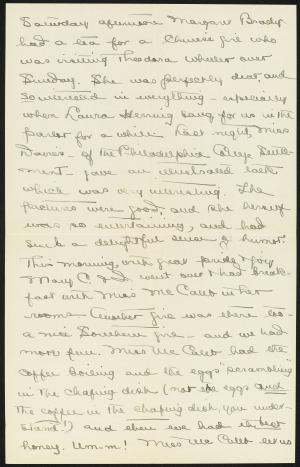 Saturday afternoon Margaret Brady
had a tea for a Chinese girl who
was visiting Theodora Wheeler over
Sunday. She was perfectly dear, and
so interested in everything - especially
when Laura Henning sang for us in the
parlor for a while. Last night, Miss
Davies - of the Philadelphia College Settle-
ment - gave an illustrated talk
which was very interesting. The
pictures were good, and she herself
was so entertaining, and had
such a delightful sense of humor.
This morning, with great pride & joy
Mary C. & I went over & had break-
fast with Miss McCaleb in her
room - Another girl was there too -
a nice Southern girl - and we had
more fun. Miss McCaleb had the
coffee boiling and the eggs "scrambling"
in the chafing dish (not the eggs and
the coffee in the chafing dish, you under-
stand!) and then we had the best
honey. Um-m! Miss McCaleb let us